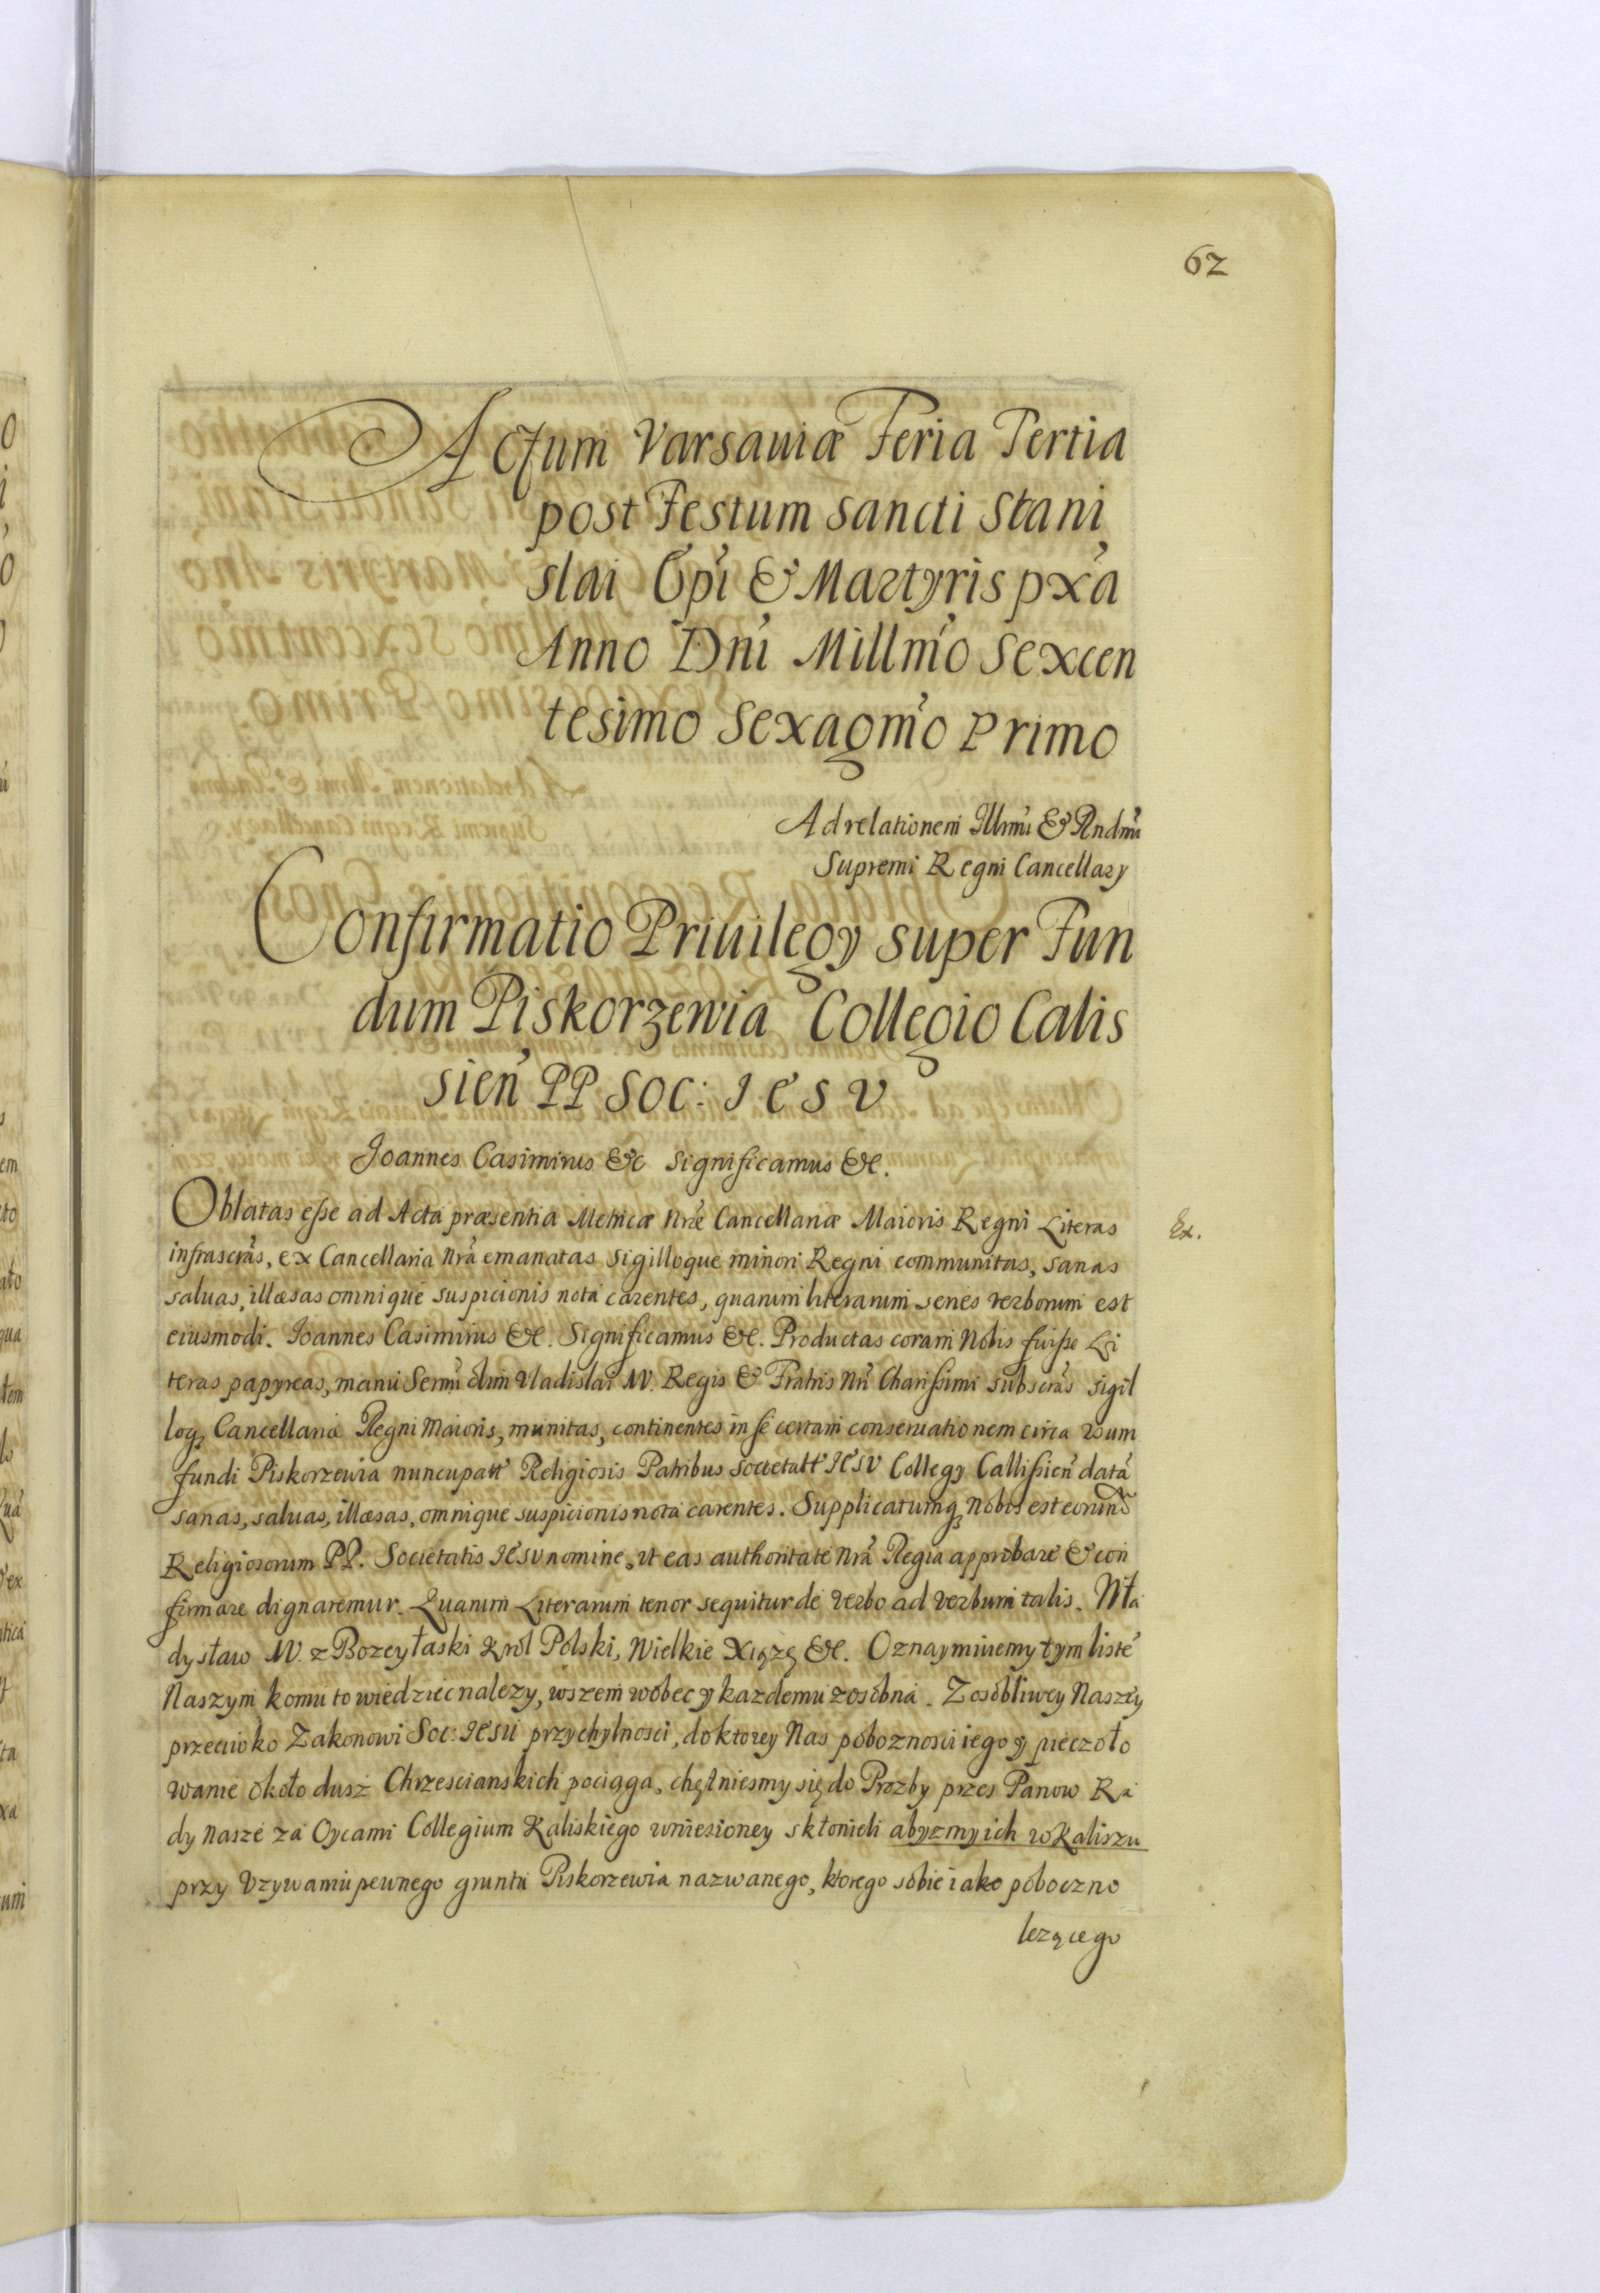 62
Actum Varsaviæ Feria Tertia
post Festum Sancti Stani
slai Epi & Martyris pxa
Anno Dni Millmo Sexcen
tesimo Sexagmo Primo
Ad relationem Illmi & Rndmi
Supremi Regni Cancellary
Confirmatio Priuilegy super Fun
dum Piskorzewia Collegio Calis
sien PP Soc: Iesv
Joannes Casimirus &c Significamus &c.
Oblatas esse ad Acta præsentia Metricæ Nræ Cancellariæ Maioris Regni Literas
Ex.
infrascras, ex Cancellaria Nra emanatas Sigilloque minori Regni communitas, sanas
saluas, illæsas omnique suspicionis nota carentes, quarum literarum senes verborum est
eiusmodi. Joannes Casimirus &c. Significamus &c. Productas coram Nobis fuisse Li
teras papyreas, manu Sermi olim Vladislai IV. Regis & Fratris Nri Charissimi subscras sigil
loq Cancellariæ Regni Maioris, munitas, continentes in se certam conseruationem circa vsum
fundi Piskorzewia nuncupatt Religiosis Patribus Societatt Iesv Collegy Callissien data
sanas, saluas, illæsas, omnique suspicionis nota carentes. Supplicatumq Nobis est eorund
Religiosorum PP. Societatis Iesv nomine, vt eas authoritate Nra Regia approbare & con
firmare dignaremur. Quarum Literarum tenor sequitur de verbo ad verbum talis. Wła
dysław IV. z Bozey łaski Krol Polski, Wielkie Xiązę &c. Oznaymiuemy tym liste
Naszym komu to wiedziec nalezy, wszem wobec y kazdemu zosobna. Zosobliwey Naszey
przeciwko Zakonowi Soc: Iesu przychylnosci, do ktorey Nas poboznosci iego y pieczoło
wanie około dusz Chrzescianskich pociąga, chętniesmy się do Prozby przes Panow Ra
dy Nasze za Oycami Collegium Kaliskiego wniesioney skłonieli abyzmy ich w Kaliszu
przy Vzywaniu pewnego gruntu Piskorzewia nazwanego, ktorego sobie iako poboczno
lezącego